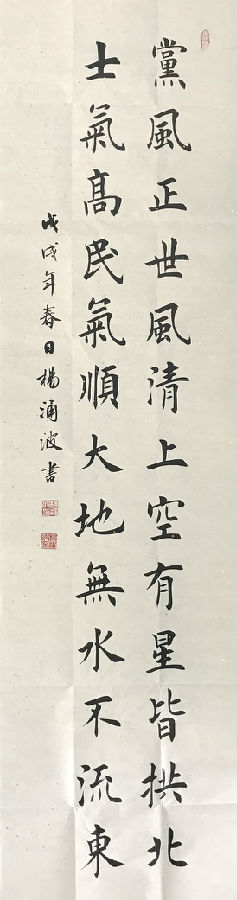 黨風正世風清上空有星皆拱北
士氣高民氣順大地無水不流東
戊戌年春日楊涌波書